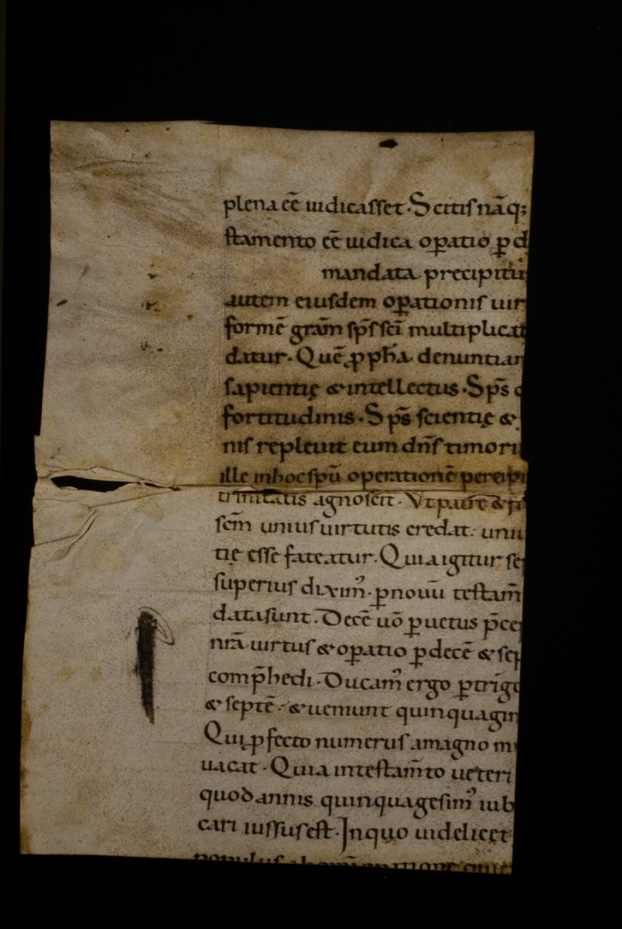 plena eē iudicasset. Scitis nāq;
stamento eē iudica oꝑatio ꝑ d
mandata precipitu
autem eiusdem oꝑationis uir
formē grām sp̄s sc̄i multiplicat
datur. Quē ꝓpha denuntian
sapientię & intellectus. Sp̄s c
fortitudinis. Sp̄s scientię &
nis repleuit eum dn̄s timori
ille in hoc spū operationē percipi
trinitatis agnoscit. Vt patrē & fi
sem unius uirtutis credat. uniu
tię esse fateatur. Quia igitur se
superius dixim᾿. ꝑ nouū testam̄
data sunt. Decē uō ꝑ uetus p̄ce
nr̄a uirtus & oꝑatio ꝑ decē & sep
comp̄hedi. Ducam᾿ ergo ꝑ trigi
& septē. & ueniunt quinquagin
Qui ꝓfecto numerus a magno m
uacat. Quia in testam̄to ueteri
quod annis quinquagesim᾿ iub
cari iussus est. In quo uidelicet
populus ab om̄i